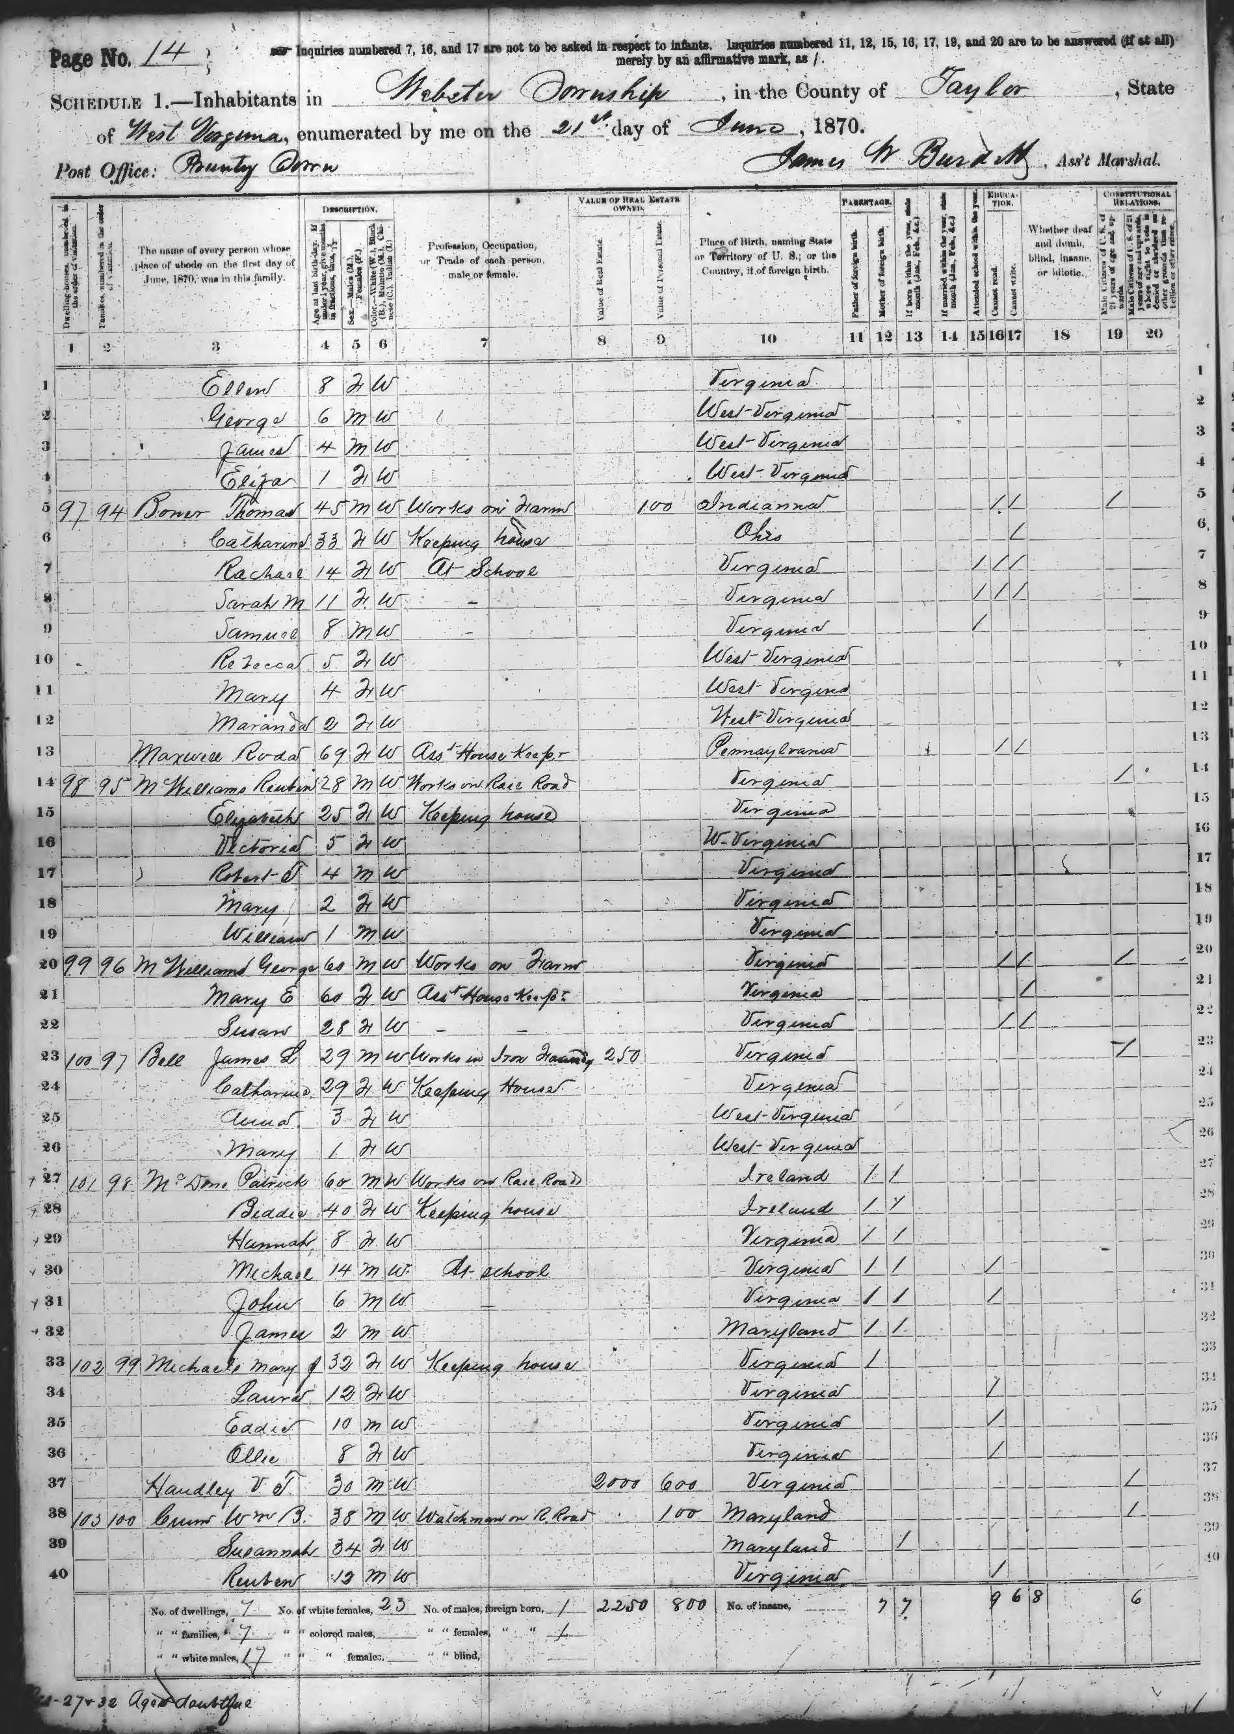 Page No. 14
Inquiries numbered 7, 16, and 17 are not to be asked in respect to infants. Inquiries numbered 11, 12, 15, 16, 17, 19, and 20 are to be answered (if at all)
merely by an affirmative mark, as /.
SCHEDULE 1.—Inhabitants in Webster Township, in the County of Taylor, State
of West Virginia, enumerated by me on the 21st day of June, 1870.
Post Office: Prunty Town James W Burdett, Ass't Marshal.
Dwelling-houses, numbered in the order of visitation.
Families, numbered in the order of visitation.
The name of every person whose place of abode on the first day of June, 1870, was in this family.
DESCRIPTION.
Age at last birth-day. If under 1 year, give months in fractions, thus, 3/12
Sex.—Males (M.), Females (F.)
Color.—White (W.), Black (B.), Mulatto (M.), Chinese (C.), Indian (I.)
Profession, Occupation, or Trade of each person, male or female.
VALUE OF REAL ESTATE OWNED.
Value of Real Estate.
Value of Personal Estate.
Place of Birth, naming State or Territory of U. S.; or the Country, if of foreign birth.
PARENTAGE.
Father of foreign birth.
Mother of foreign birth.
If born within the year, state month (Jan., Feb., &c.)
If married within the year, state month (Jan., Feb., &c.)
Attended school within the year.
EDUCATION.
Cannot read.
Cannot write.
Whether deaf and dumb, blind, insane, or idiotic.
CONSTITUTIONAL RELATIONS.
Male Citizens of U. S. of 21 years of age and upwards.
Male Citizens of U. S. of 21 years of age and upwards, whose right to vote is denied or abridged on other grounds than rebellion or other crime.
1 2 3 4 5 6 7 8 9 10 11 12 13 14 15 16 17 18 19 20
1 Ellen 8 F W Virginia 1
2 George 6 M W West-Virginia 2
3 James 4 M W West-Virginia 3
4 Eliza 1 F W West-Virginia 4
5 97 94 Bower Thomas 45 M W Works on Farm 100 Indianna / / / 5
6 Catharine 33 F W Keeping house Ohio / 6
7 Rachael 14 F W At School Virginia / / / 7
8 Sarah M 11 F W - Virginia / / / 8
9 Samuel 8 M W - Virginia / 9
10 Rebecca 5 F W West-Virginia 10
11 Mary 4 F W West-Virginia 11
12 Maranda 2 F W West-Virginia 12
13 Maxwell Roda 69 F W Asst House Keepr Pennsylvania / / 13
14 98 95 McWilliams Reubin 28 M W Works on Rail Road Virginia / 14
15 Elizabeth 25 F W Keeping house Virginia 15
16 Victoria 5 F W W-Virginia 16
17 Robert T 4 M W Virginia 17
18 Mary 2 F W Virginia 18
19 William 1 M W Virginia 19
20 99 96 McWilliams George 60 M W Works on Farm Virginia / / / 20
21 Mary E 60 F W Asst House Keepr Virginia / 21
22 Susan 28 F W - - Virginia / / 22
23 100 97 Bell James L 29 M W Works in Iron Foundry 250 Virginia / 23
24 Catharine 29 F W Keeping House Virginia 24
25 Anna 3 F W West-Virginia 25
26 Mary 1 F W West-Virginia 26
27 101 98 Patrick 60 M W Works on Rail Road Ireland / / 27
28 Biddie 40 F W Keeping house Ireland / / 28
29 Hannah 8 F W Virginia / / 29
30 Michael 14 M W At school Virginia / / / 30
31 John 6 M W - Virginia / / / 31
32 James 2 M W Maryland / / 32
33 102 99 Michaels Mary J 32 F W Keeping house Virginia / 33
34 Laura 12 F W Virginia / 34
35 Eddie 10 M W Virginia / 35
36 Ollie 8 F W Virginia / 36
37 Handley V T 30 M W 2000 600 Virginia / 37
38 103 100 Wm B. 38 M W Watchman on R. Road 100 Maryland / 38
39 Susannah 34 F W Maryland / 39
40 Reuben 12 M W Virginia / 40
No. of dwellings, 7 No. of white females, 23 No. of males, foreign born, 1 2250 800 No. of insane, 7 7 9 6 8 6
" " families, 7 " " colored males, " " females, " " 1
" " white males, 17 " " " females, " " blind,
27 + 32 Ages doubtful